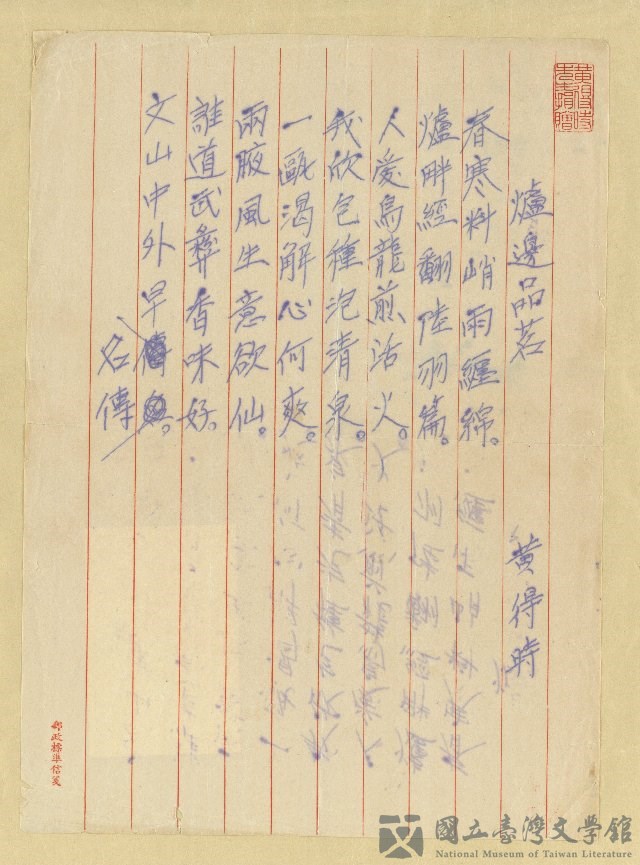 爐邊品茗 黃得時
春寒料峭雨纏綿。
爐畔經翻陸羽篇。
人愛烏龍煎活火。
我欣包種泡清泉。
一甌渴解心何爽。
兩腋風生意欲仙。
誰道武彝香味好。
文山中外早
名傳
黃得時
先生贈
郵政標準信箋
國立臺灣文學館
National Museum of Taiwan Literature